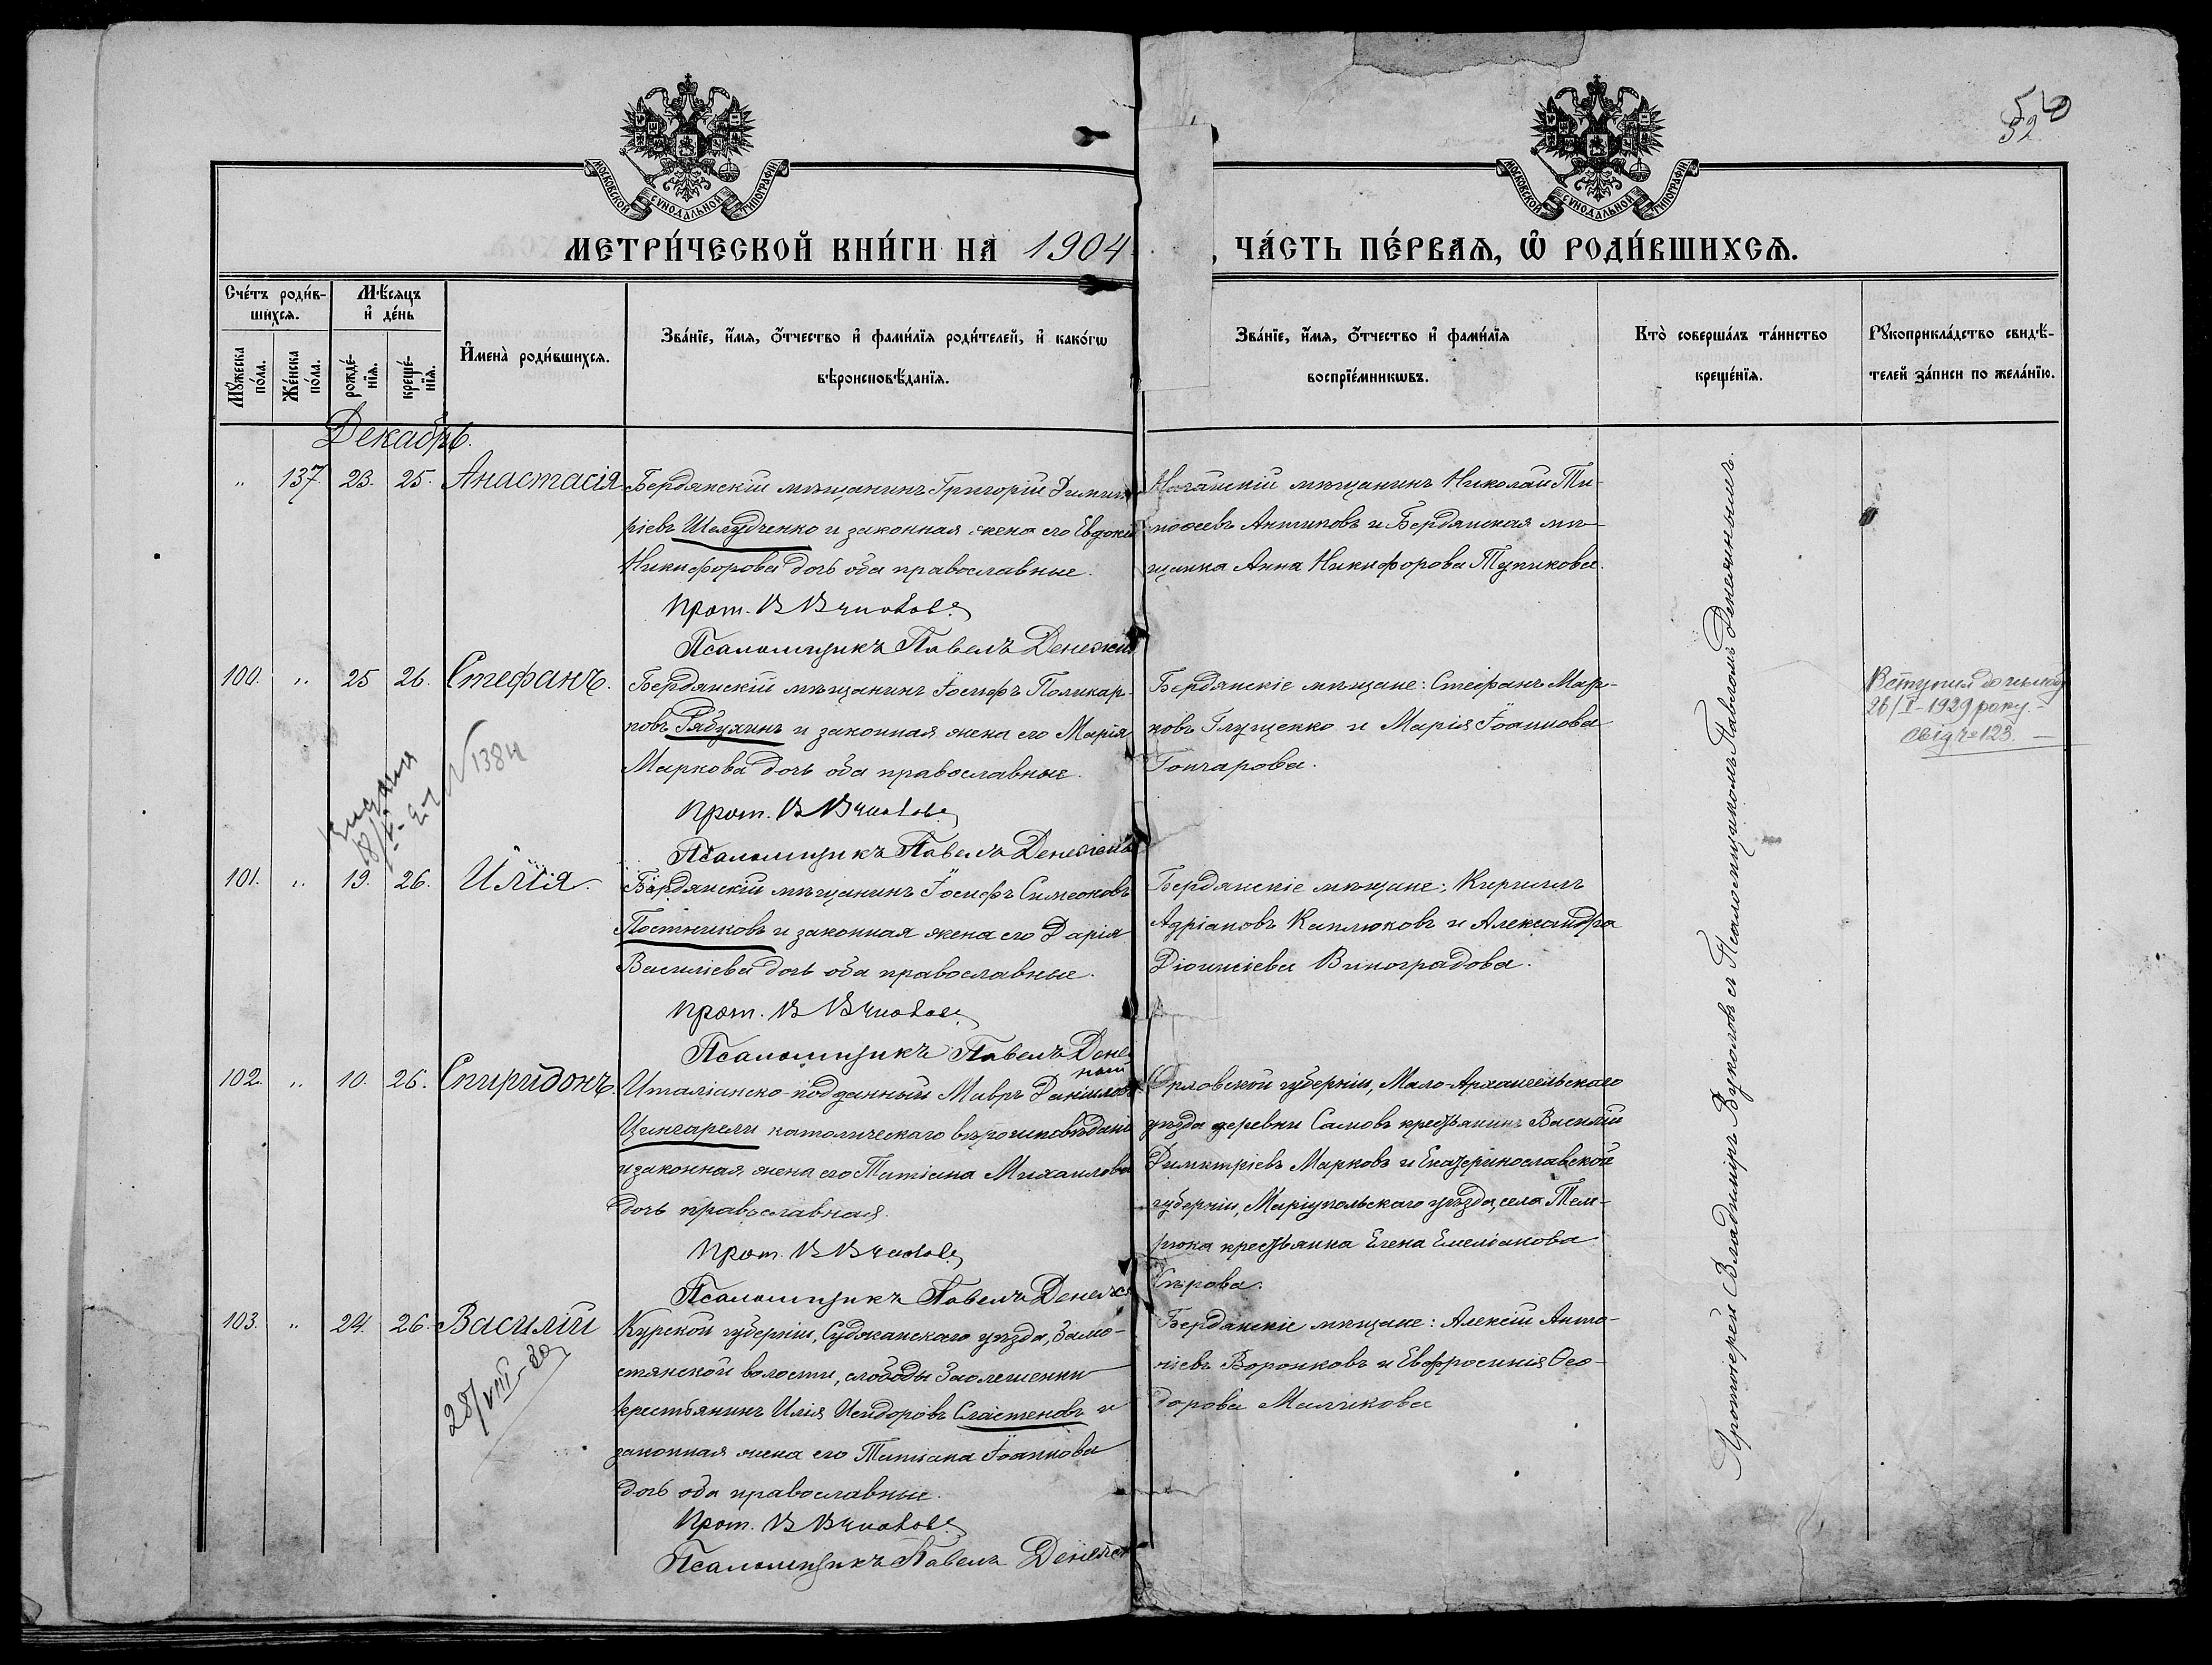 52
МОСКОВСКОЙ СѴНОДАЛЬНОЙ ТИПОГРАФІИ
МОСКОВСКОЙ СѴНОДАЛЬНОЙ ТИПОГРАФІИ
МЕТРИ́ЧЕСКОЙ КНИ́ГИ НА 1904
, ЧА́СТЬ ПЕ́РВАѦ, Ѡ҆ РОДИ́ВШИХСѦ.
Сче́тъ роди́вшихсѧ.
Мꙋ́жеска по́ла.
Же́нска по́ла.
Мѣ́сѧцъ и҆ де́нь
рожде́нїѧ.
креще́нїѧ.
И҆мена̀ роди́вшихсѧ.
Зва́нїе, и҆́мѧ, ѻ҆́тчество и҆ фами́лїѧ роди́телей, и҆ како́гѡ
вѣроисповѣ́данїѧ.
Зва́нїе, и҆́мѧ, ѻ҆́тчество и҆ фами́лїѧ
воспрїе́мникѡвъ.
Кто̀ соверша́лъ та́инство
креще́нїѧ.
Рꙋкоприкла́дство свидѣ́-
телей за́писи по жела́нїю.
Декабрь.
" 137. 23. 25. Анастасія
Бердянскій мѣщанинъ Григорій Димит
ріевъ Шелудченко и законная жена его Евдокі
Никифорова дочь оба православные.
Прот. В Вуколовъ
Псаломщикъ Павелъ Денежн
Ногайскій мѣщанинъ Николай Ти-
моѳеевъ Антиповъ и Бердянская мѣ-
щанка Анна Никифорова Тупикова.
100. " 25 26. Стефанъ.
Бердянскій мѣщанинъ Іосифъ Поликар-
повъ Рябухинъ и законная жена его Марія
Маркова дочь оба православные.
Прот. В Вуколовъ
Псаломщикъ Павелъ Денежн
Бердянскіе мѣщане: Стефанъ Мар-
ковъ Глущенко и Марія Іоаннова
Гончарова.
Вступил до
26/I-1929 року.
свід № 123.
N 1384
101. " 19. 26. Илія.
Бердянскій мѣщанинъ Іосифъ Симеоновъ
Постниковъ и законная жена его Дарія
Василіева дочь оба православные.
Прот. В Вуколовъ
Псаломщикъ Павелъ Дене
Бердянскіе мѣщане: Кириллъ
Адріановъ Каплюковъ и Александра
Діонисіева Виноградова.
102. " 10. 26. Спиридонъ.
Италіанско-подданный Мавръ Даніиловъ
Цингарели католическаго вѣроисповѣдані
и законная жена его Татіана Михаилова
дочь православная.
Прот. В Вуколовъ
Псаломщикъ Павелъ Денеж
Орловской губерніи, Мало-Архангельскаго
уѣзда деревни Самовъ крестьянинъ Василій
Димитріевъ Марковъ и Екатеринославской
губерніи, Маріупольскаго уѣзда, села Тем-
рюка крестьянка Елена Емеліанова
103. " 24. 26. Василій
28/VIII-30
Курской губерніи, Суджанскаго уѣзда, Замо-
стянской волости, слободы Заолешенки
крестьянинъ Илія Исидоровъ Сластеновъ и
законная жена его Татіана Іоаннова
дочь оба православные.
Прот. В Вуколовъ
Псаломщикъ Павелъ Денежн
Бердянскіе мѣщане: Алексій Анто-
ніевъ Воронковъ и Евфросинія Ѳео-
дорова Маликова
Протоіерей Владиміръ Вуколовъ съ Псаломщикомъ Павломъ Денежнымъ.